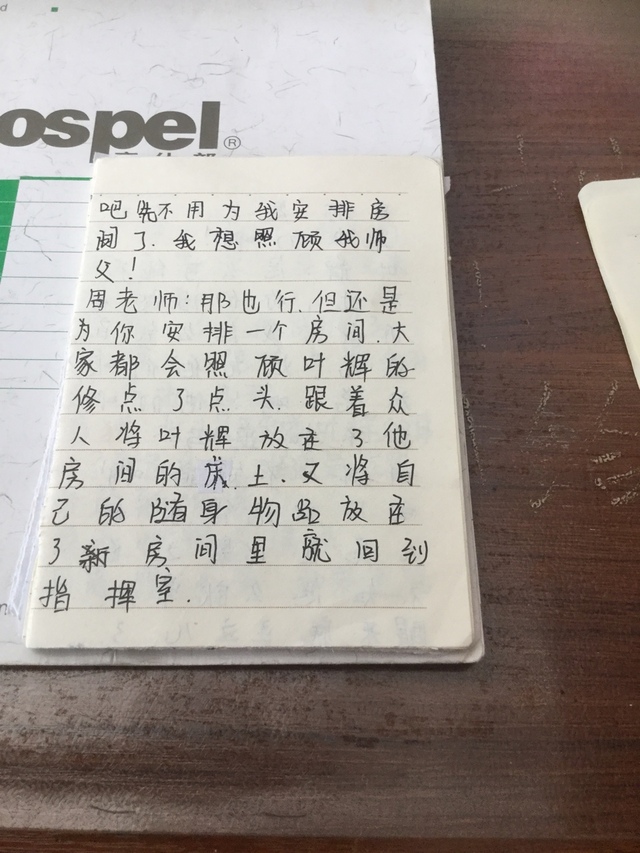 ospel®
吧先不用为我安排房
间了.我想照顾我师
父!
周老师:那也行.但还是
为你安排一个房间.大
家都会照顾叶辉的
修点了点头.跟着众
人将叶辉放在了他
房间的床上.又将自
己的随身物品放在
了新房间里就回到
指挥室.